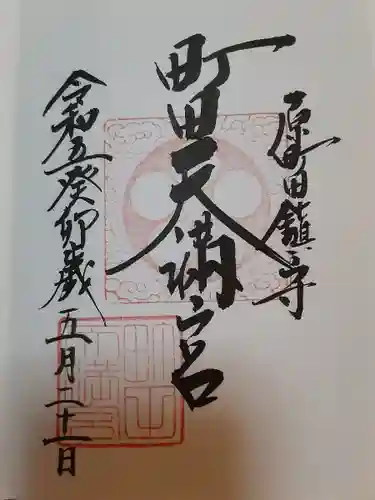 原町田鎮守
町田天満宮
令和五癸卯歳五月二十一日